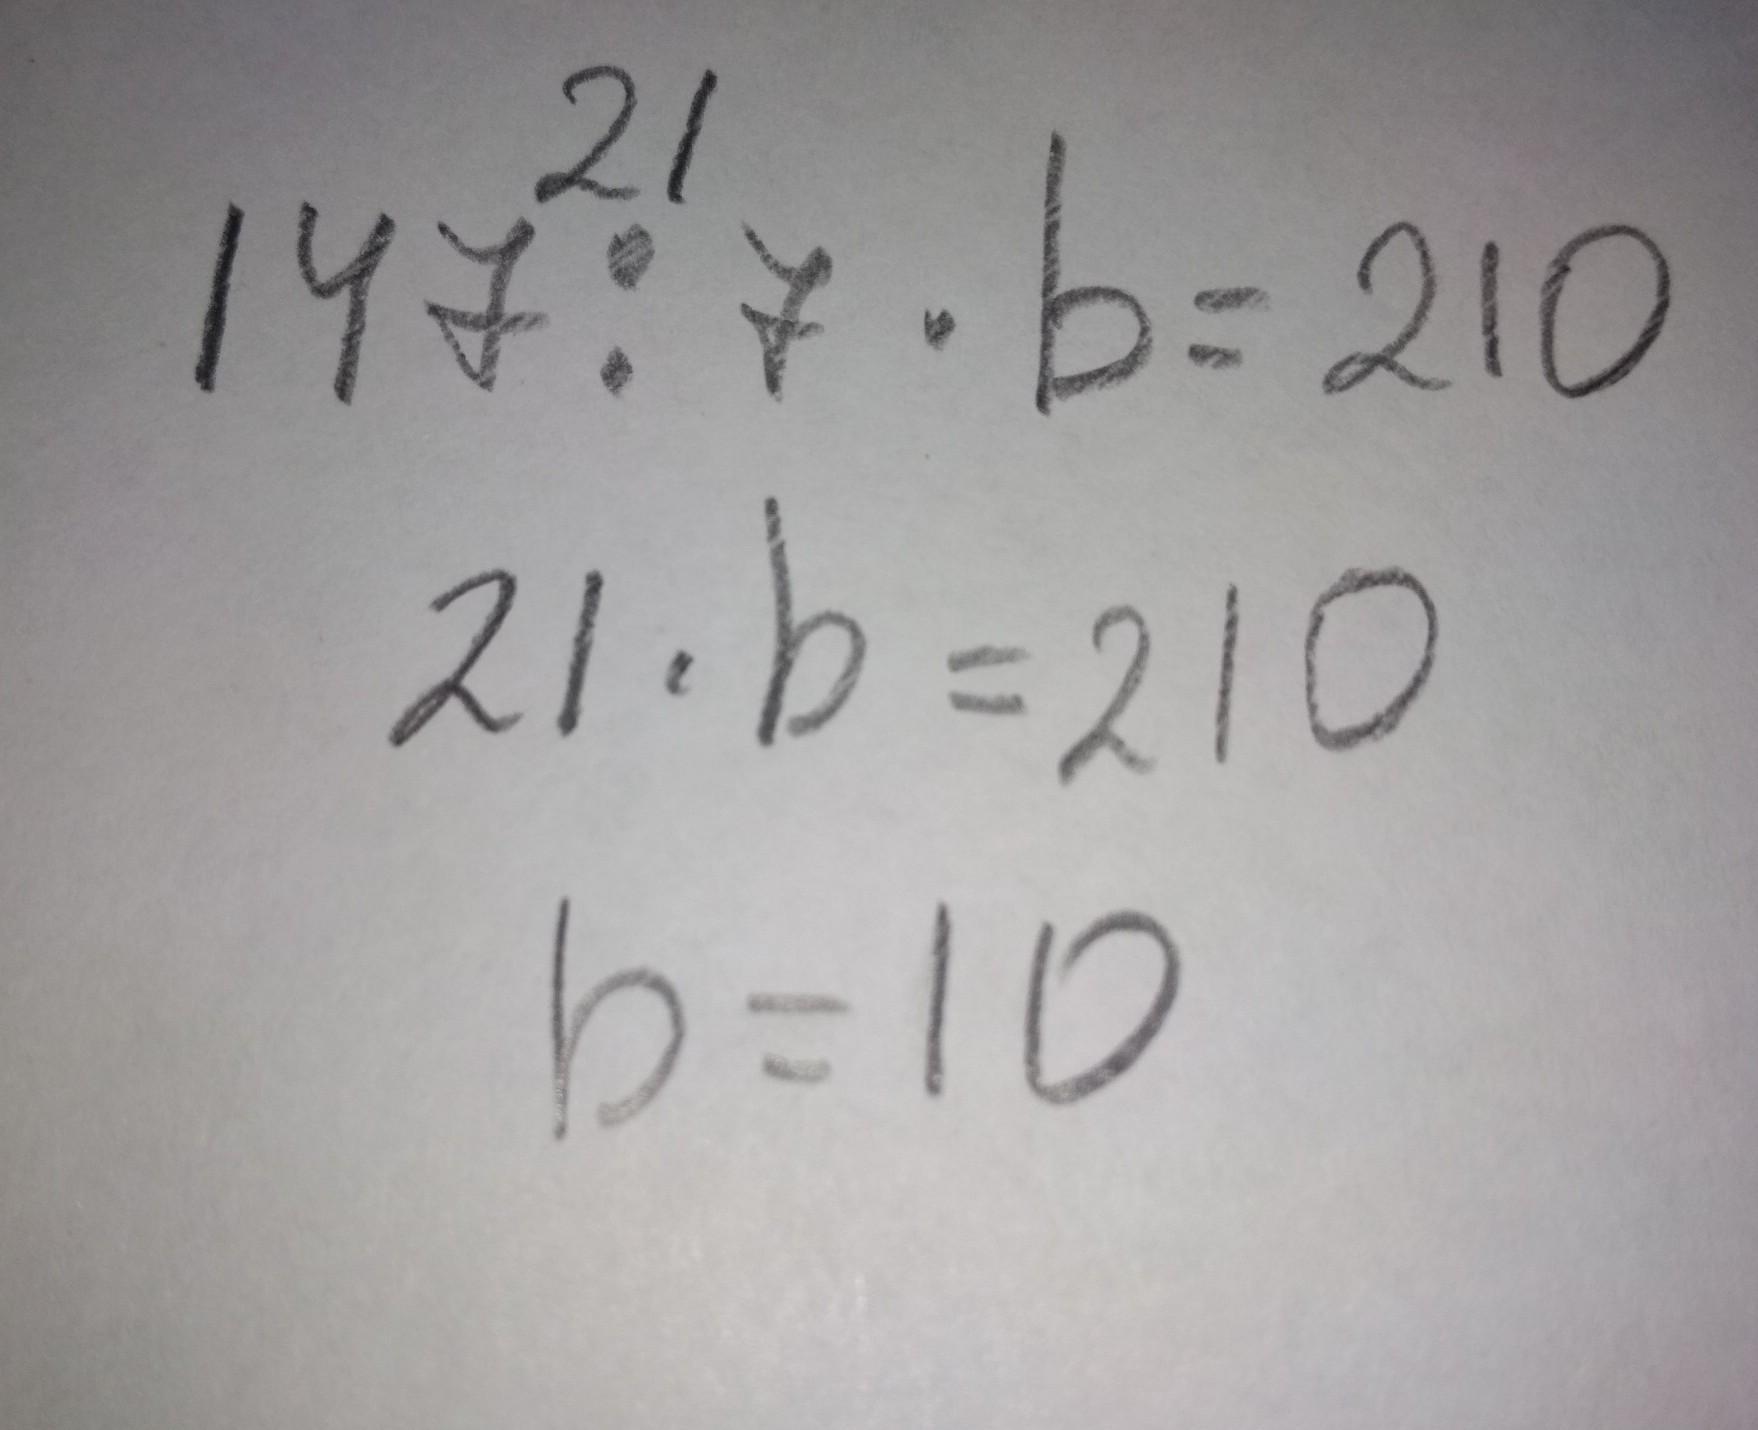 21
147 : 7 · b = 210
21 · b = 210
b = 10